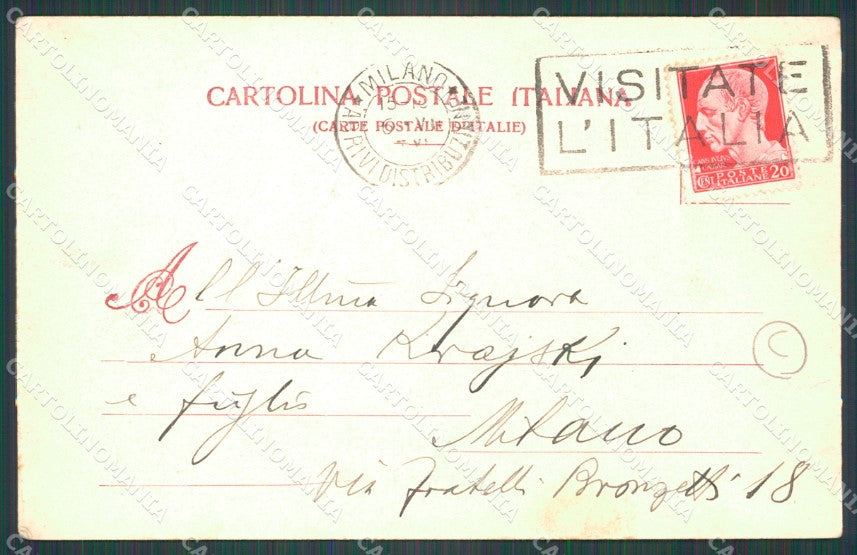 CARTOLINA POSTALE ITALIANA
(CARTE POSTALE D'ITALIE)
MILANO
ARRIVI DISTRIBUZIONE
VISITATE
L'ITALIA
POSTE
ITALIANE
CENT 20
All'Illma Signora
Anna Krajski
e figlio
Milano
Via Fratelli Bronzetti 18
C
CARTOLINOMANIA